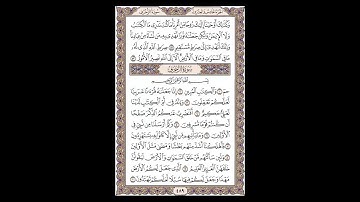 وَكَذَٰلِكَ أَوْحَيْنَا إِلَيْكَ رُوحًا مِّنْ أَمْرِنَا مَا كُنتَ تَدْرِي مَا الْكِتَٰبُ
وَلَا الْإِيمَٰنُ وَلَٰكِن جَعَلْنَٰهُ نُورًا نَّهْدِي بِهِ مَن نَّشَاءُ مِنْ عِبَادِنَا
وَإِنَّكَ لَتَهْدِي إِلَىٰ صِرَٰطٍ مُّسْتَقِيمٍ ٥٢ صِرَٰطِ اللَّهِ الَّذِي لَهُ
مَا فِي السَّمَٰوَٰتِ وَمَا فِي الْأَرْضِ أَلَا إِلَى اللَّهِ تَصِيرُ الْأُمُورُ ٥٣
سُورَةُ الزُّخْرُفِ
بِسْمِ اللَّهِ الرَّحْمَٰنِ الرَّحِيمِ
حم ١ وَالْكِتَٰبِ الْمُبِينِ ٢ إِنَّا جَعَلْنَٰهُ قُرْءَٰنًا عَرَبِيًّا
لَّعَلَّكُمْ تَعْقِلُونَ ٣ وَإِنَّهُ فِي أُمِّ الْكِتَٰبِ لَدَيْنَا
لَعَلِيٌّ حَكِيمٌ ٤ أَفَنَضْرِبُ عَنكُمُ الذِّكْرَ صَفْحًا
أَن كُنتُمْ قَوْمًا مُّسْرِفِينَ ٥ وَكَمْ أَرْسَلْنَا مِن نَّبِيٍّ فِي
الْأَوَّلِينَ ٦ وَمَا يَأْتِيهِم مِّن نَّبِيٍّ إِلَّا كَانُوا بِهِ يَسْتَهْزِءُونَ ٧
فَأَهْلَكْنَا أَشَدَّ مِنْهُم بَطْشًا وَمَضَىٰ مَثَلُ الْأَوَّلِينَ ٨
وَلَئِن سَأَلْتَهُم مَّنْ خَلَقَ السَّمَٰوَٰتِ وَالْأَرْضَ لَيَقُولُنَّ
خَلَقَهُنَّ الْعَزِيزُ الْعَلِيمُ ٩ الَّذِي جَعَلَ لَكُمُ الْأَرْضَ
مَهْدًا وَجَعَلَ لَكُمْ فِيهَا سُبُلًا لَّعَلَّكُمْ تَهْتَدُونَ ١٠
٤٨٩